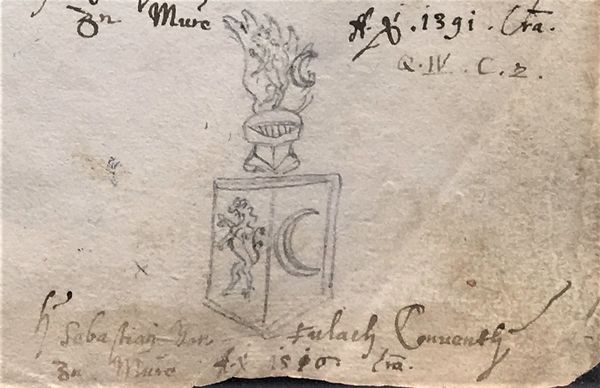 Zn Mure A. X. 1391. Cra.
Q. IV. C. 2.
H Sebastian Von Fulach Conventh
Zn Mure A. X 1510. Cra.